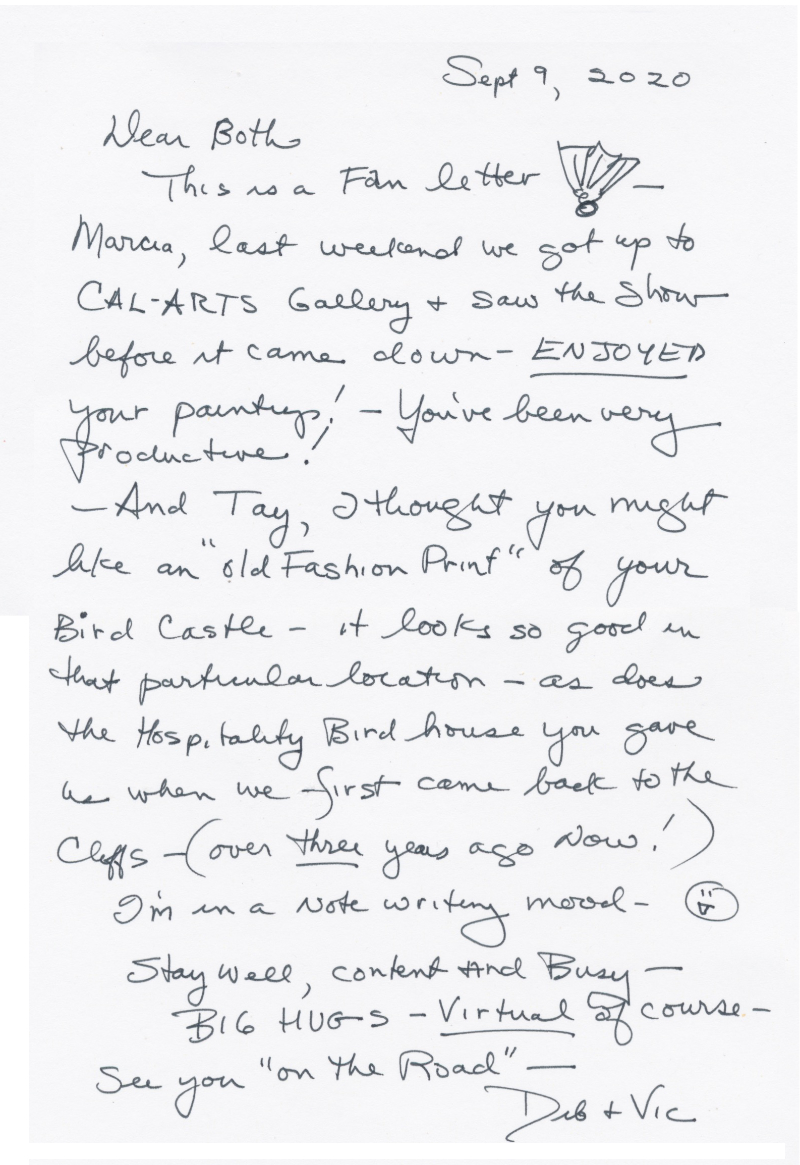 Sept 9, 2020
Dear Both
This is a Fan letter —
Marcia, last weekend we got up to
CAL-ARTS Gallery + saw the Show
before it came down - ENJOYED
your paintings! - You've been very
productive!
- And Tay, I thought you might
like an "old Fashion Print" of your
Bird Castle - it looks so good in
that particular location - as does
the Hospitality Bird house you gave
us when we first came back to the
Cliffs - (over three years ago now!)
I'm in a note writing mood -
Stay well, content and Busy -
BIG HUGS - Virtual of course -
See you "on the Road" -
Deb + Vic